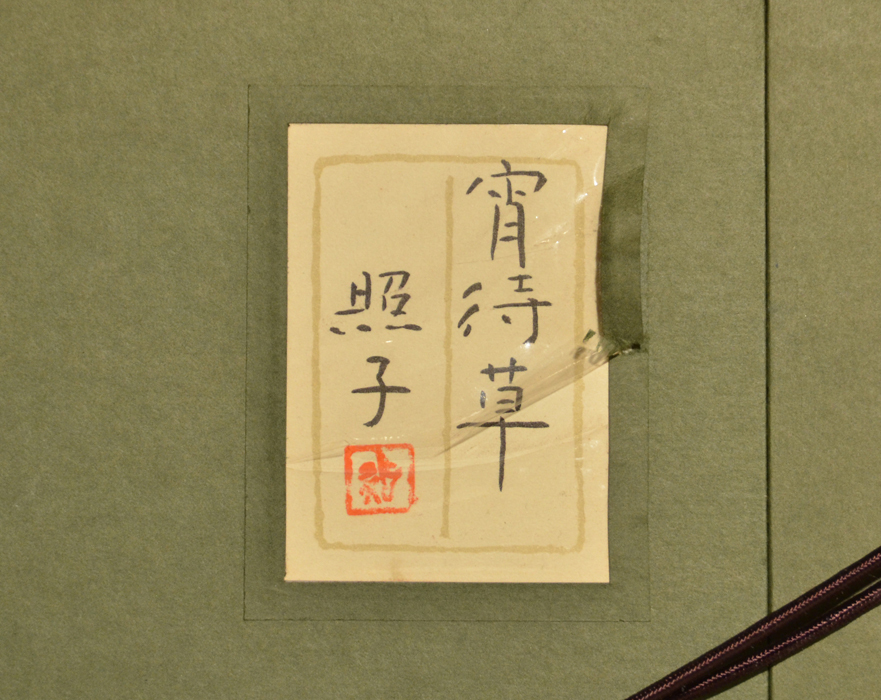 宵待草
照子